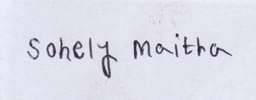 Sohely Maitha